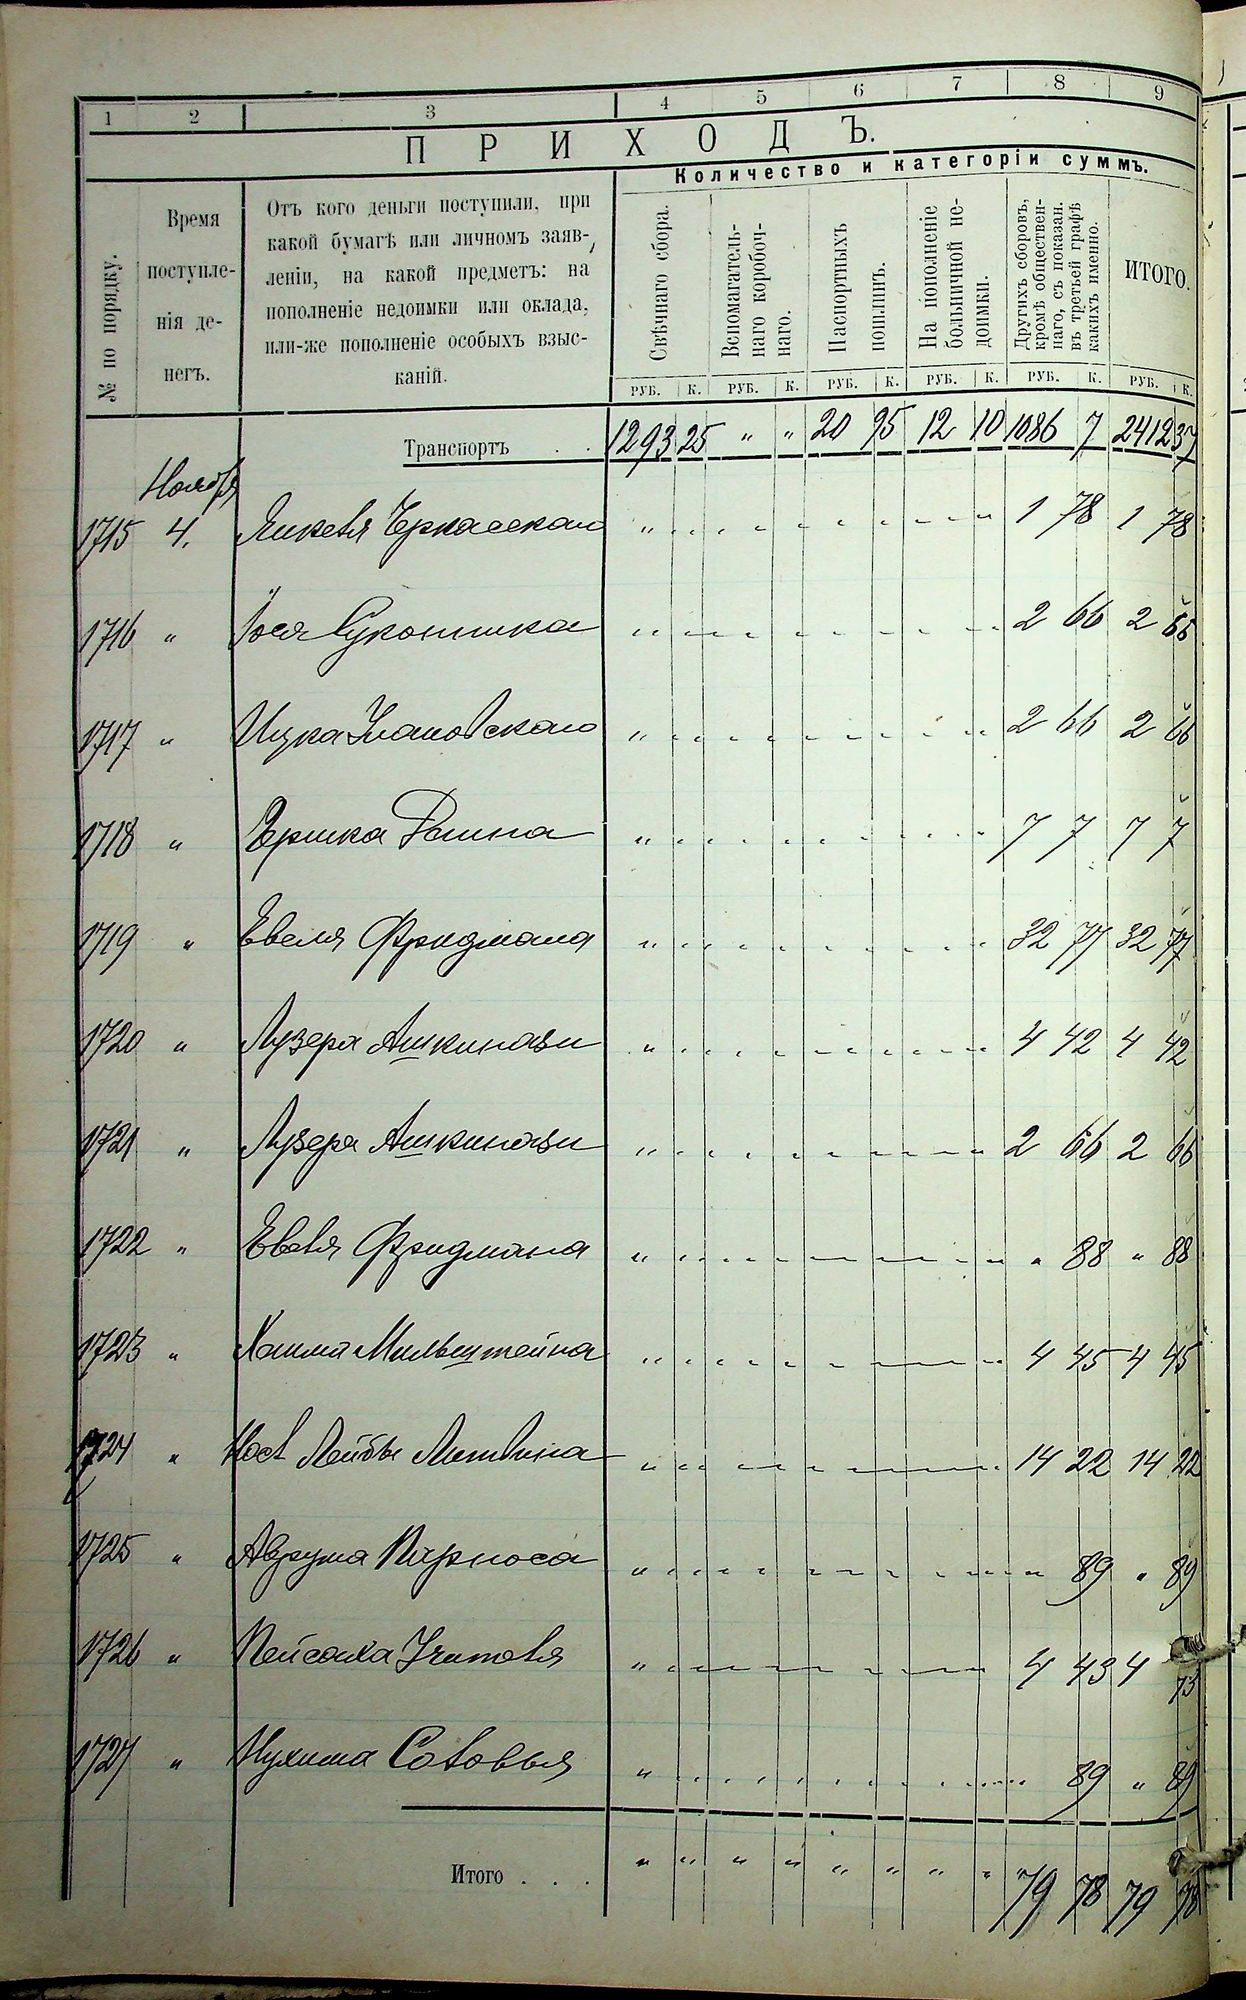 1 2 3 4 5 6 7 8 9
ПРИХОДЪ.
Количество и категоріи суммъ.
№ по порядку.
Время
поступле-
нія де-
негъ.
Отъ кого деньги поступили, при
какой бумагѣ или личномъ заяв-
леніи, на какой предметъ: на
пополненіе недоимки или оклада,
или-же пополненіе особыхъ взыс-
каній.
Свѣчнаго сбора.
Вспомагатель-
наго коробоч-
наго.
Паспортныхъ
пошлинъ.
На пополненіе
больничной не-
доимки.
Другихъ сборовъ,
кромѣ обществен-
наго, съ показан.
въ третьей графѣ
какихъ именно.
ИТОГО.
РУБ. К. РУБ. К. РУБ. К. РУБ. К. РУБ. К. РУБ. К.
Транспортъ . . 1293 25 " " 20 95 12 10 1086 7 2412 37
Ноября
1715 4. Янкеля Черкасскаго " 1 78 1 78
1716 " Іося " 2 66 2 66
1717 " Ицка " 2 66 2 66
1718 " Гершка " 7 7 7 7
1719 " Евеля Фридмана " 32 77 32 77
1720 " Лузера Ашкинази " 4 42 4 42
1721 " Лузера Ашкинази " 2 66 2 66
1722 " Евеля Фридмана " " 88 " 88
1723 " Хаима Мильштейна " 4 45 4 45
1724 " Лейбы Литвина " 14 22 14 22
1725 " Аврума Парноса " " 89 " 89
1726 " Пейсаха Учителя " 4 43 4
1727 " Нухима Соловья " 89 " 89
Итого . . . " " " " " " " " 79 78 79 78